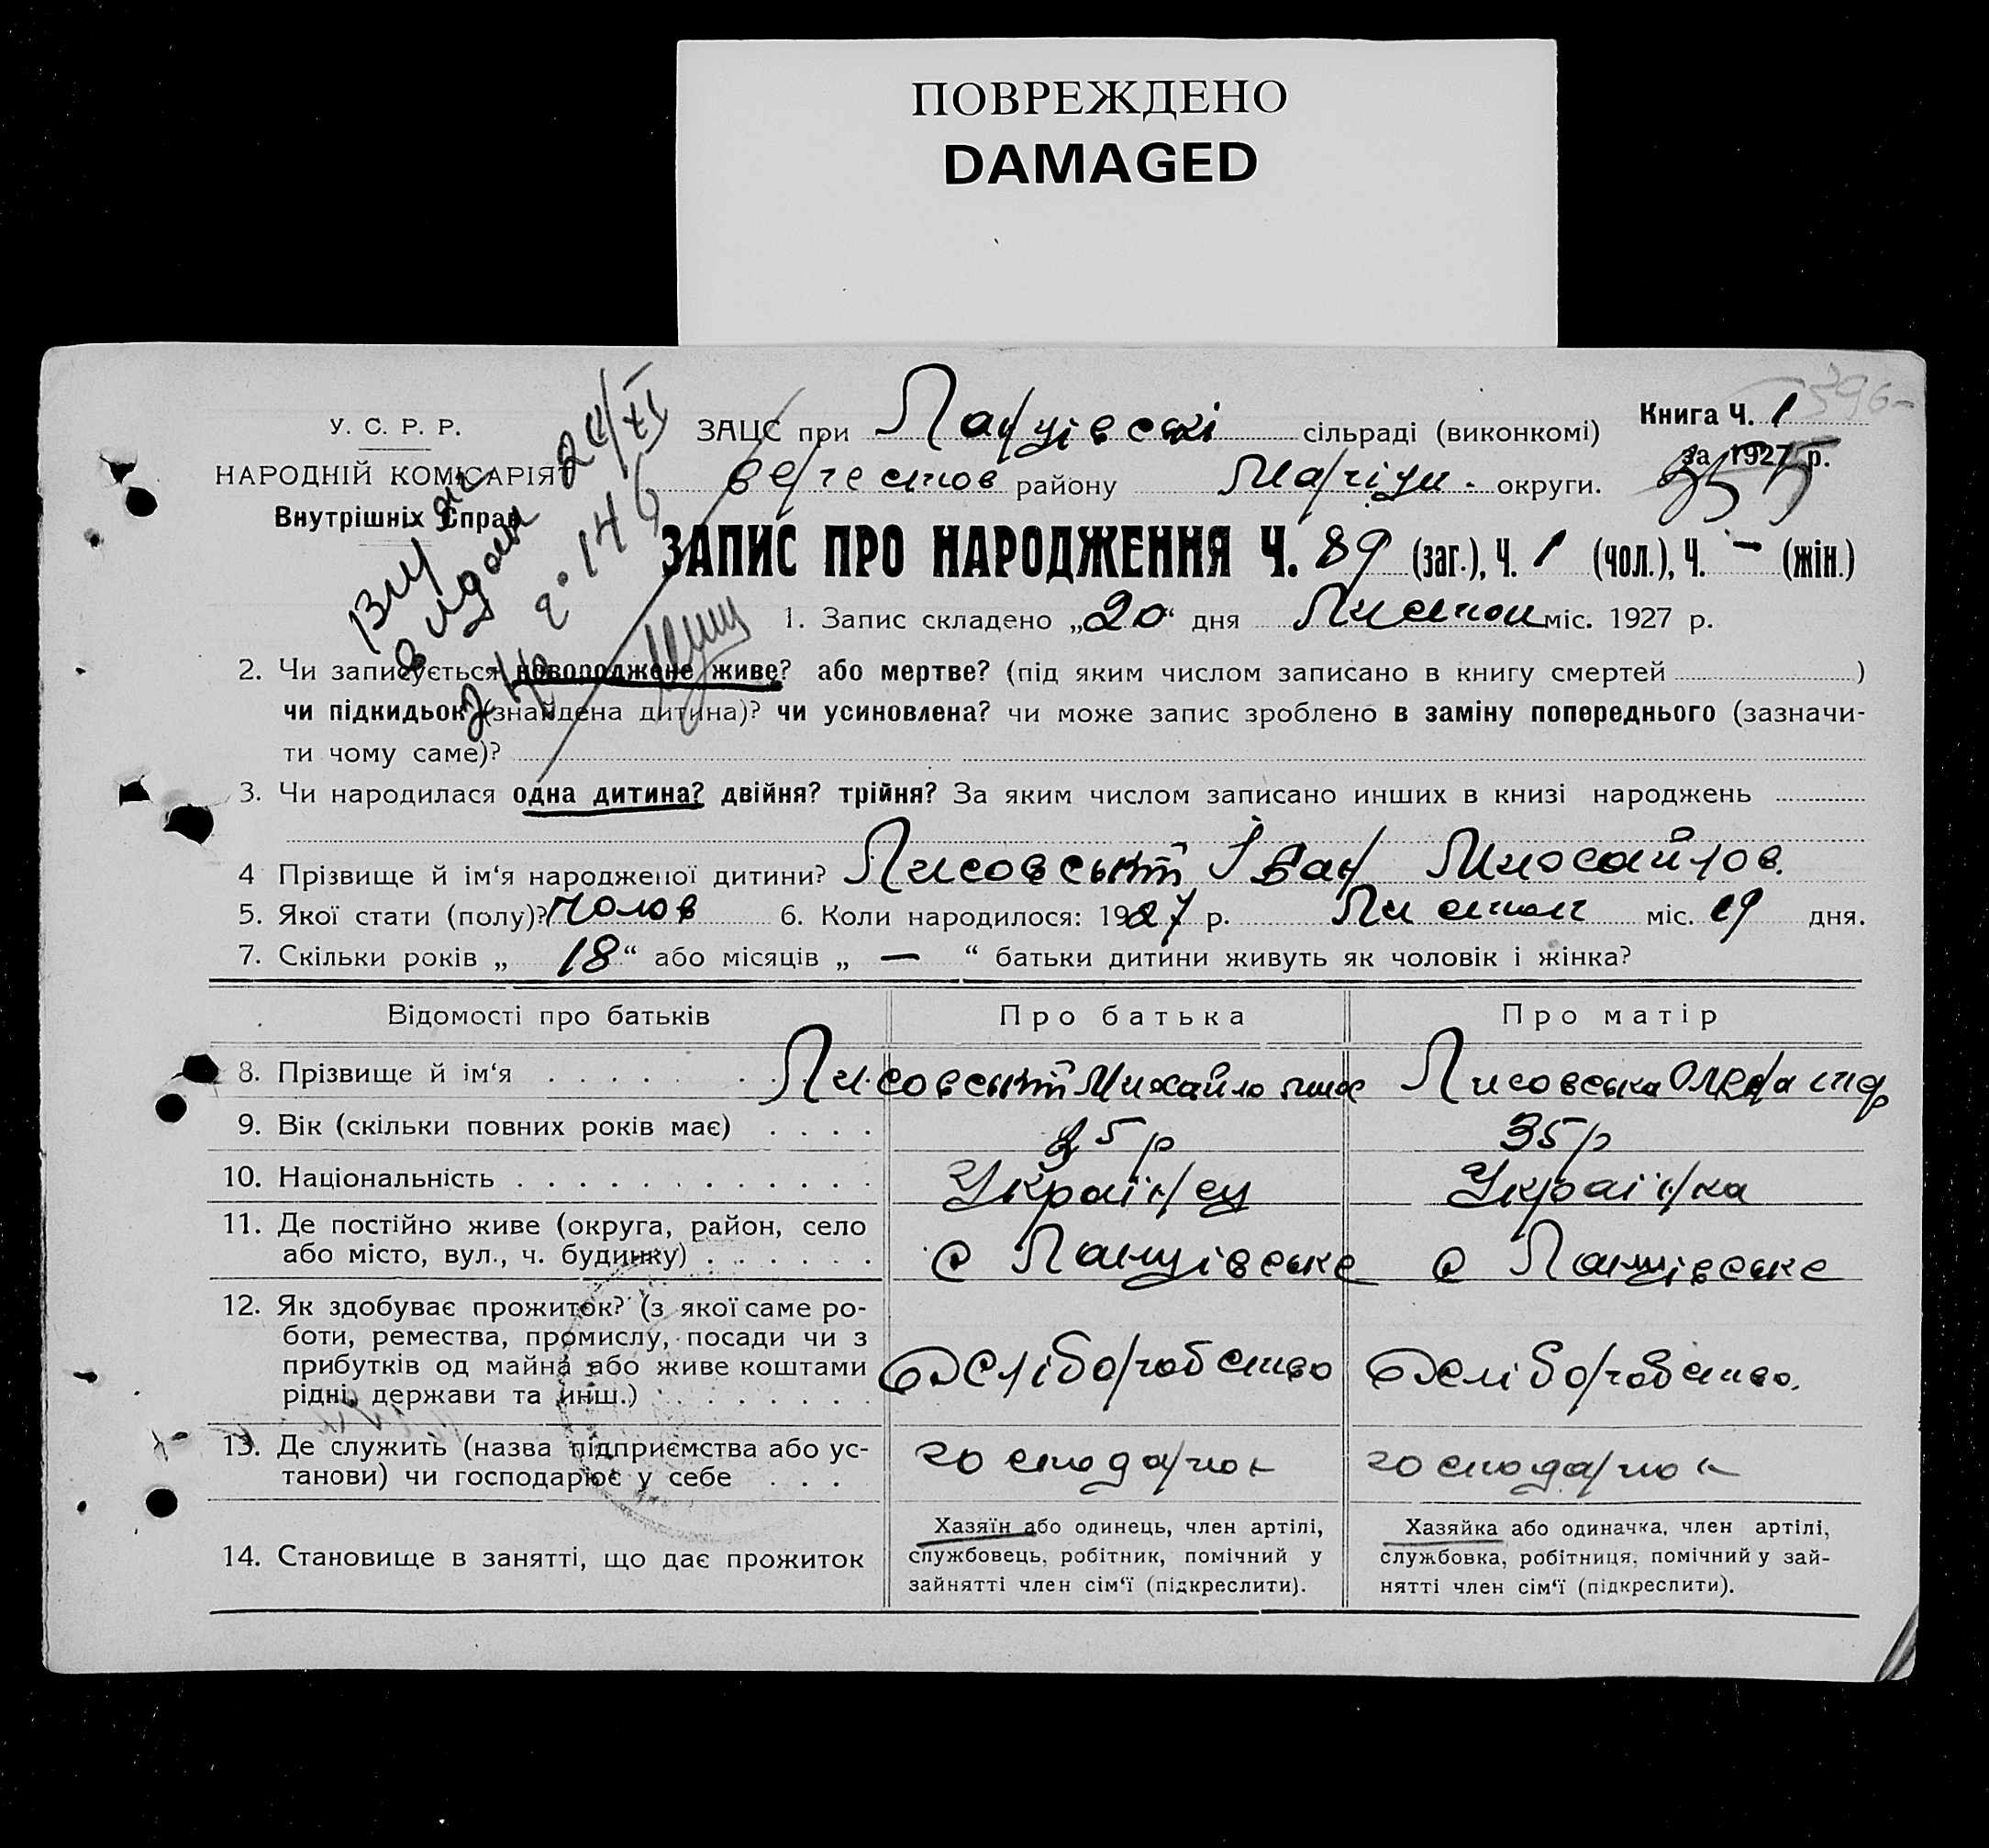 ПОВРЕЖДЕНО
DAMAGED
У. С. Р. Р.
НАРОДНІЙ КОМІСАРІЯТ
Внутрішніх Справ
ЗАЦС при сільраді (виконкомі)
Книга Ч. 1
396
району округи.
за 1927 р.
видан 24/XI
ЗАПИС ПРО НАРОДЖЕННЯ Ч. 89 (заг.), Ч. 1 (чол.), Ч. — (жін.)
1. Запис складено „20“ дня Листоп міс. 1927 р.
2. Чи записується новороджене живе? або мертве? (під яким числом записано в книгу смертей )
чи підкидьок (знайдена дитина)? чи усиновлена? чи може запис зроблено в заміну попереднього (зазначи-
ти чому саме)?
3. Чи народилася одна дитина? двійня? трійня? За яким числом записано инших в книзі народжень
4 Прізвище й ім‘я народженої дитини? Лисовський Іван Михайлов.
5. Якої стати (полу)? Чолов 6. Коли народилося: 1927 р. Листоп міс. 19 дня.
7. Скільки років „ 18 “ або місяців „ — “ батьки дитини живуть як чоловік і жінка?
Відомості про батьків Про батька Про матір
8. Прізвище й ім‘я Лисовський Михайло Лисовська Олена
9. Вік (скільки повних років має) 35 р 35 р
10. Національність Українец Українка
11. Де постійно живе (округа, район, село
або місто, вул., ч. будинку) с с
12. Як здобуває прожиток? (з якої саме ро-
боти, ремества, промислу, посади чи з
прибутків од майна або живе коштами
рідні, держави та инш.) Хліборобство Хліборобство.
13. Де служить (назва підприємства або ус-
танови) чи господарює у себе господарює господарює
14. Становище в занятті, що дає прожиток
Хазяїн або одинець, член артілі,
службовець, робітник, помічний у
зайнятті член сім‘ї (підкреслити).
Хазяйка або одиначка, член артілі,
службовка, робітниця, помічний у зай-
нятті член сім‘ї (підкреслити).